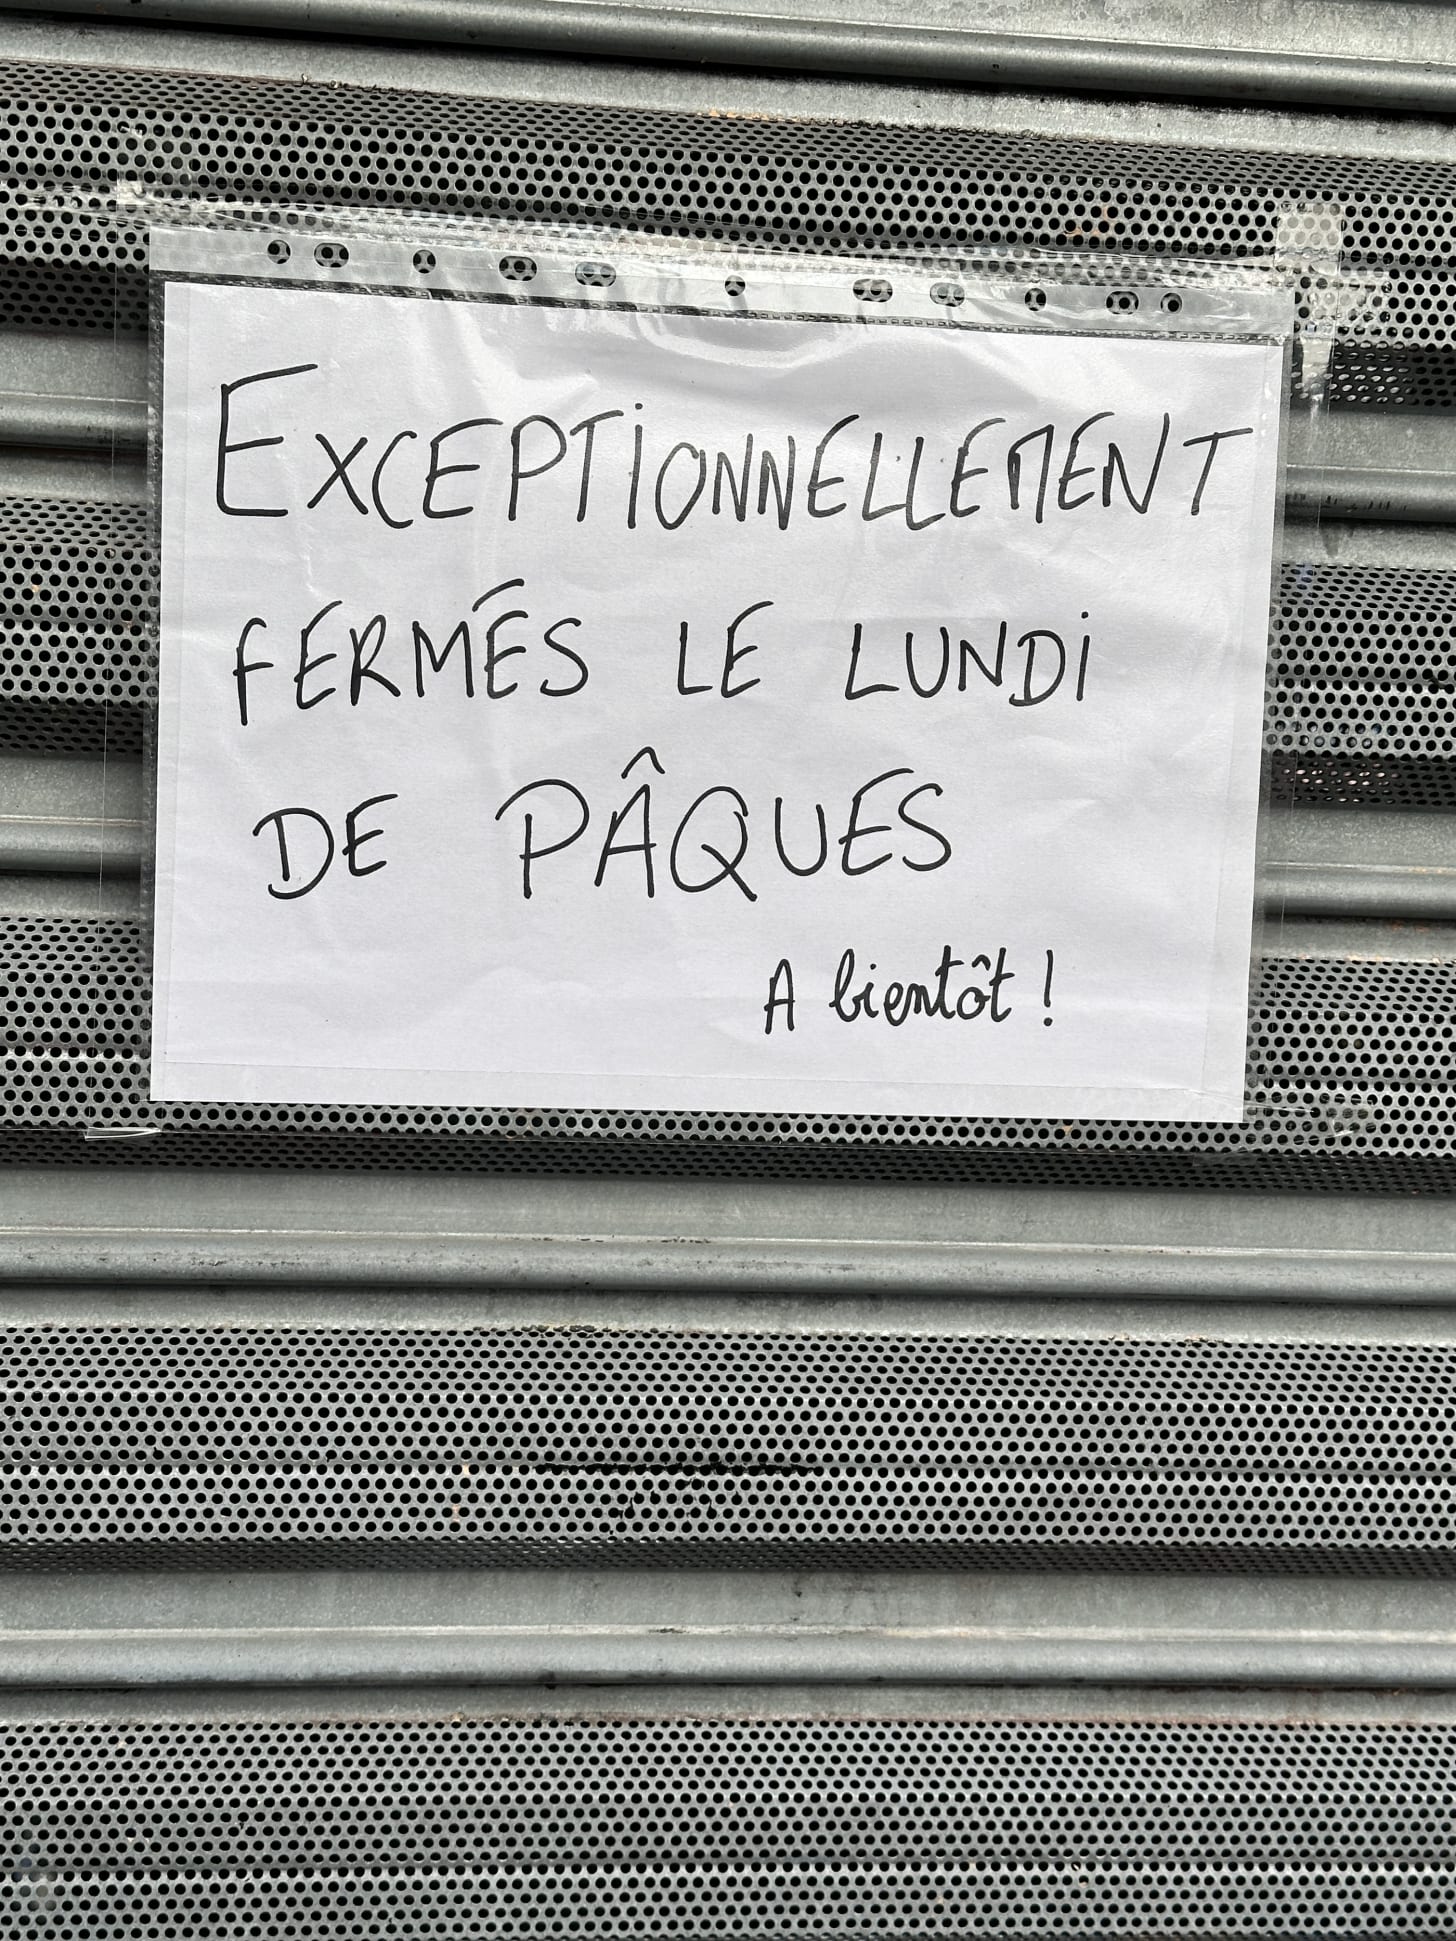 EXCEPTIONNELLEMENT
FERMÉS LE LUNDI
DE PÂQUES
A bientôt !